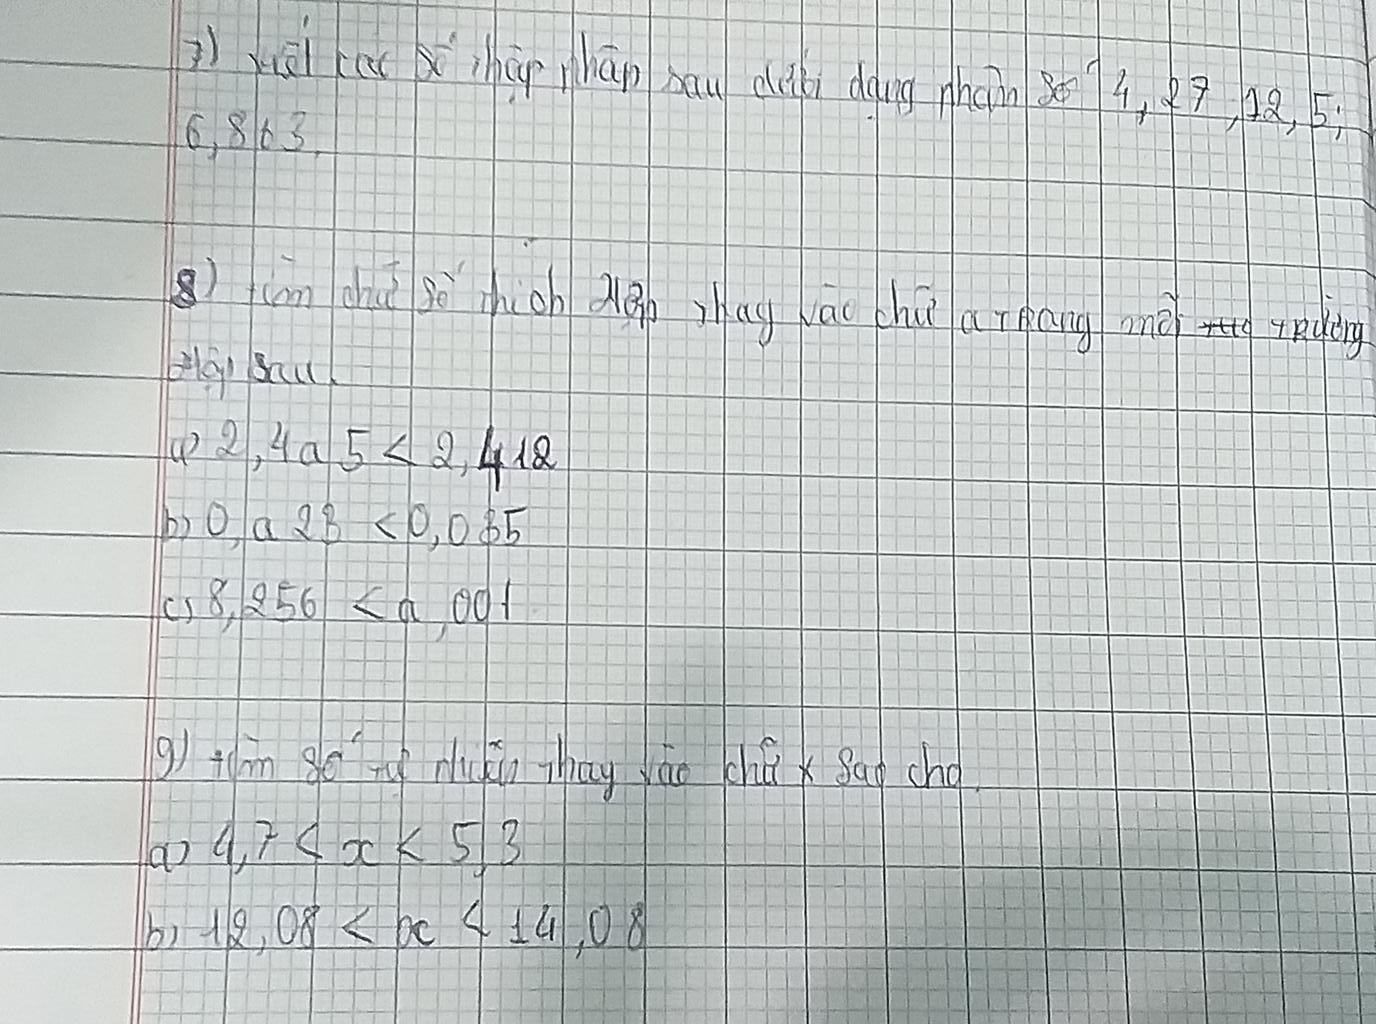 7) viết các số thập phân sau dưới dạng phân số 4,27, 12,5;
6,863.
8) tìm chữ số thích hợp thay vào chữ a trong mỗi trường
hợp sau.
a) 2,4a5 < 2,412
b) 0,a28 < 0,035
c) 8,256 < a,001
9) tìm số tự nhiên thay vào chữ x sao cho.
a) 4,7 < x < 5,3
b) 12,08 < x < 14,08